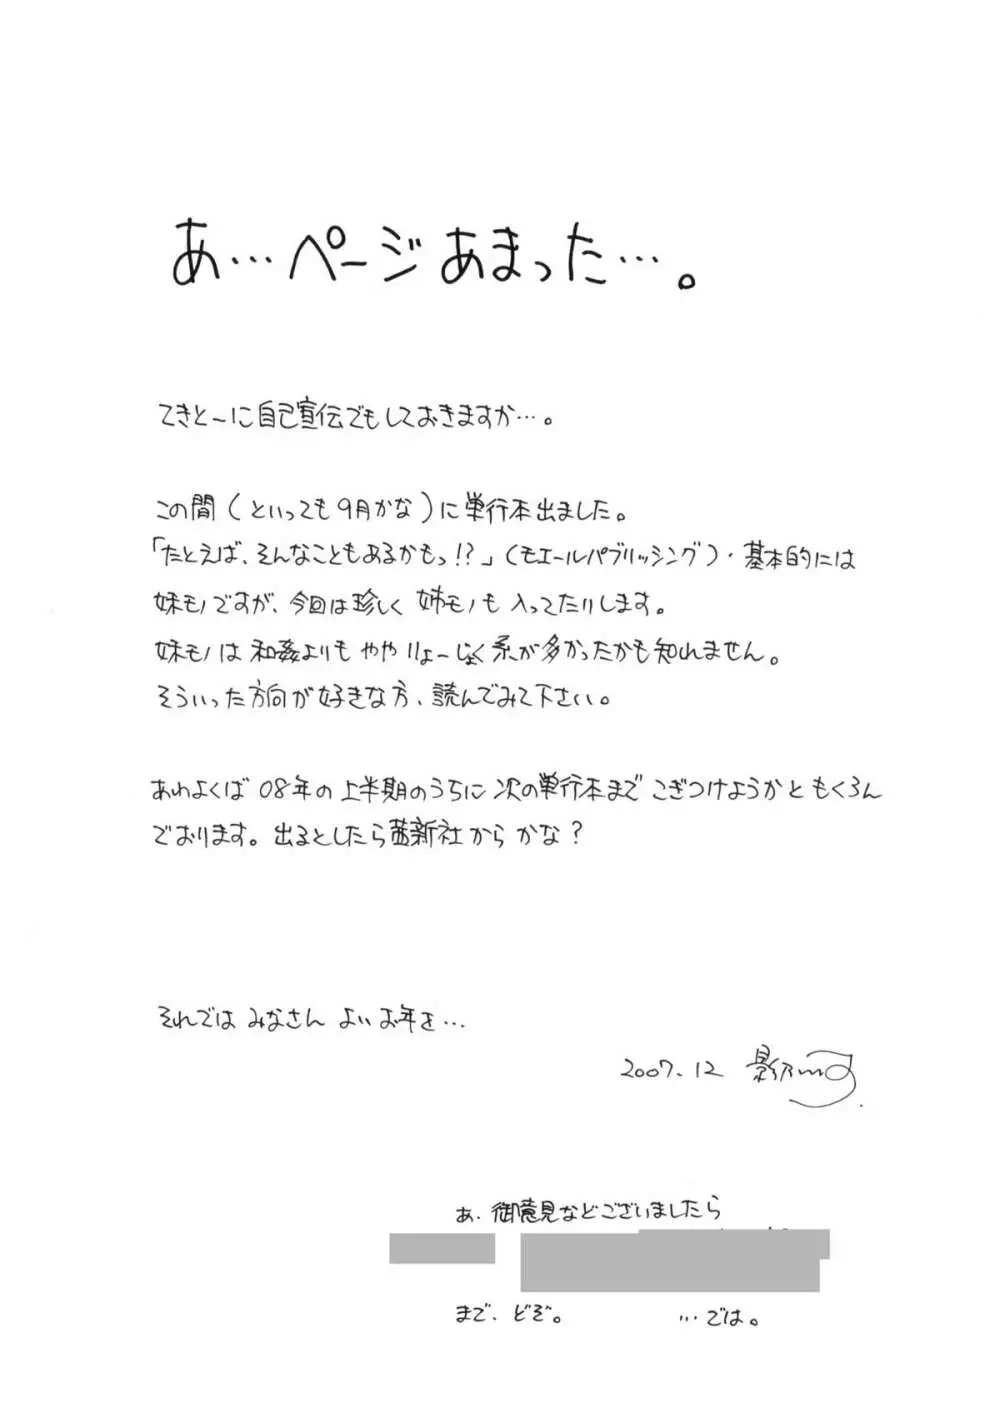 あ…ページあまった…。
てきとーに自己宣伝でもしておきますか…。
この間(といっても9月かな)に単行本出ました。
「たとえば、そんなこともあるかもっ!?」(モエールパブリッシング)・基本的には
妹モノですが、今回は珍しく姉モノも入ってたりします。
妹モノは和姦よりもややりょーじょく系が多かったかも知れません。
そういった方向が好きな方、読んでみて下さい。
あわよくば08年の上半期のうちに次の単行本までこぎつけようかともくろん
でおります。出るとしたら茜新社からかな?
それではみなさんよいお年を…
2007.12
あ、御意見などございましたら
まで、どぞ。 …では。